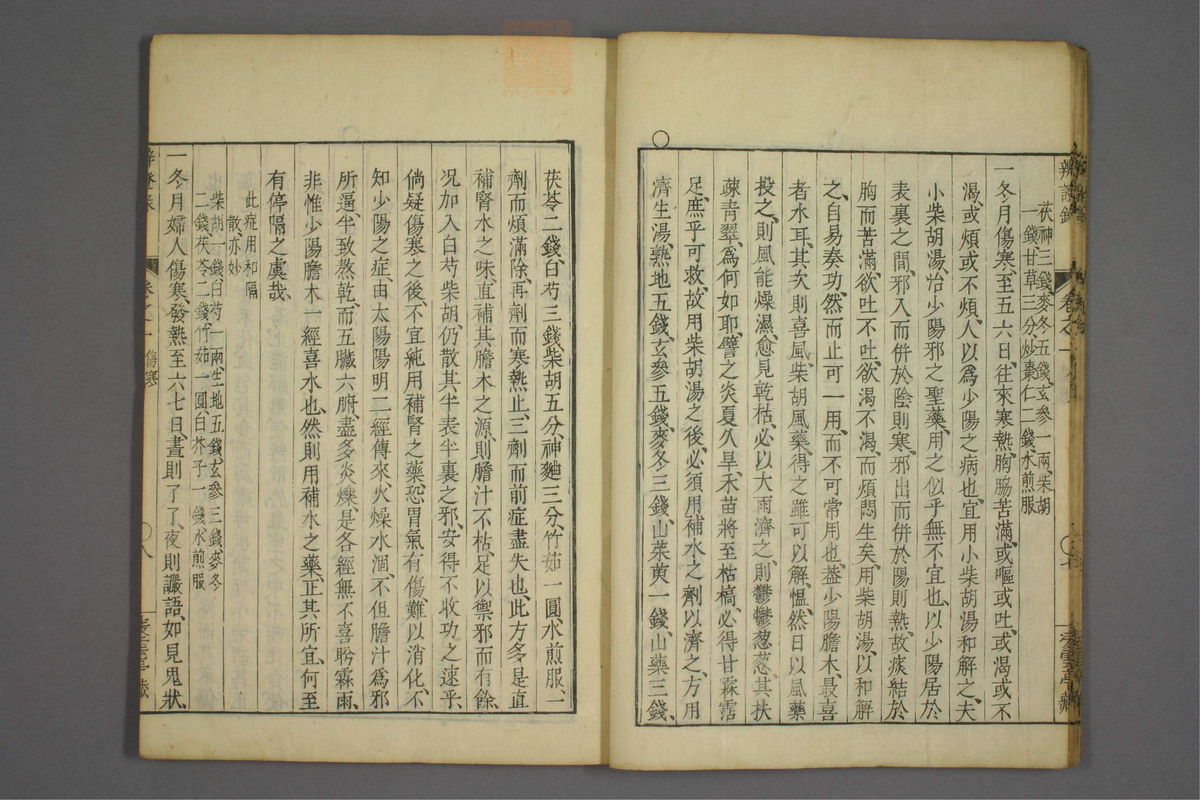 辨證錄
卷之一
茯神三錢麥冬五錢玄參一兩柴胡
一錢甘草三分炒棗仁二錢水煎服
一冬月傷寒至五六日往來寒熱胸脇苦滿或嘔或吐或渴或不
渴或煩或不煩人以爲少陽之病也宜用小柴胡湯和解之夫
小柴胡湯治少陽邪之聖藥用之似乎無不宜也以少陽居於
表裏之間邪入而併於陰則寒邪出而併於陽則熱故痰結於
胸而苦滿欲吐不吐欲渴不渴而煩悶生矣用柴胡湯以和解
之自易奏功然而止可一用而不可常用也葢少陽膽木最喜
者水耳其次則喜風柴胡風藥得之雖可以解慍然日以風藥
投之則風能燥濕愈見乾枯必以大雨濟之則鬱鬱葱葱其扶
疎青翠爲何如耶譬之炎夏久旱禾苗將至枯槁必得甘霖霑
足庶乎可救故用柴胡湯之後必須用補水之劑以濟之方用
○
濟生湯熟地五錢玄參五錢麥冬三錢山茱萸一錢山藥三錢
茯苓二錢白芍三錢柴胡五分神麯三分竹茹一圓水煎服一
劑而煩滿除再劑而寒熱止三劑而前症盡失也此方多是直
補腎水之味直補其膽木之源則膽汁不枯足以禦邪而有餘
况加入白芍柴胡仍散其半表半裏之邪安得不收功之速乎
倘疑傷寒之後不宜純用補腎之藥恐胃氣有傷難以消化不
知少陽之症由太陽陽明二經傳來火燥水涸不但膽汁爲邪
所逼半致熬乾而五臟六腑盡多炎燥是各經無不喜盻霖雨
非惟少陽膽木一經喜水也然則用補水之藥正其所宜何至
有停隔之虞哉
此症用和隔
散亦妙
柴胡一錢白芍一兩生地五錢玄參三錢麥冬
二錢茯苓二錢竹茹一圓白芥子一錢水煎服
一冬月婦人傷寒發熱至六七日晝則了了夜則讝語如見鬼狀
卷之一 傷寒
○八